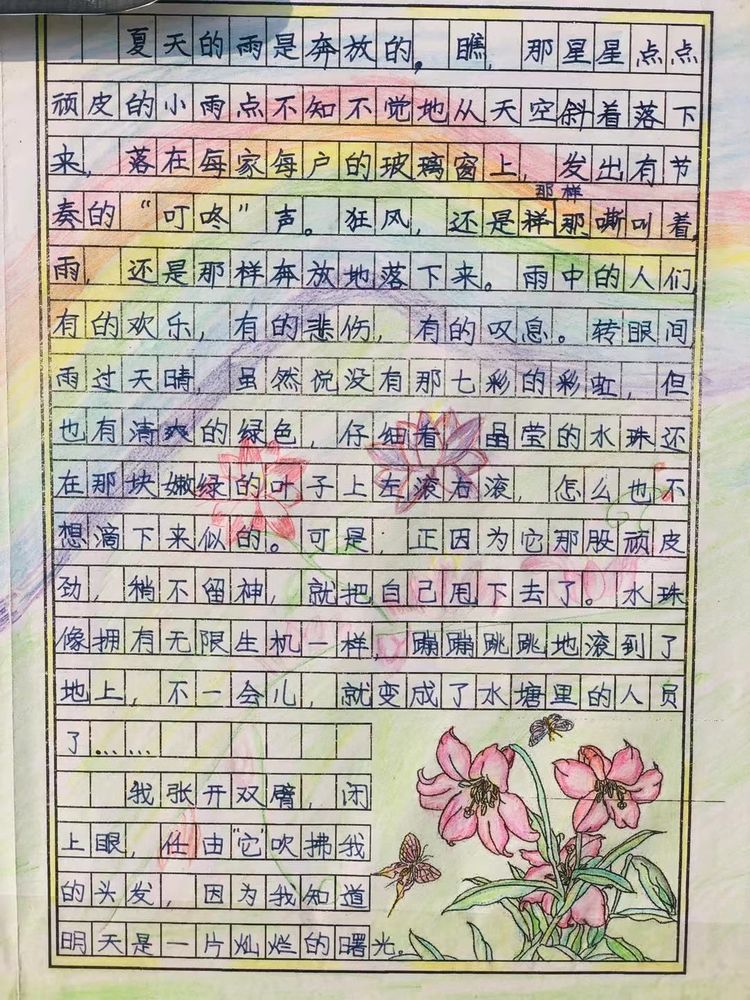 夏天的雨是奔放的。瞧，那星星点点
顽皮的小雨点不知不觉地从天空斜着落下
来，落在每家每户的玻璃窗上，发出有节
那样
奏的“叮咚”声。狂风，还是样那嘶叫着，
雨，还是那样奔放地落下来。雨中的人们，
有的欢乐，有的悲伤，有的叹息。转眼间，
雨过天晴，虽然说没有那七彩的彩虹，但
也有清爽的绿色，仔细看，晶莹的水珠还
在那块嫩绿的叶子上左滚右滚，怎么也不
想滴下来似的。可是，正因为它那股顽皮
劲，稍不留神，就把自己甩下去了。水珠
像拥有无限生机一样，蹦蹦跳跳地滚到了
地上，不一会儿，就变成了水塘里的人员
了……
我张开双臂，闭
上眼，任由“它”吹拂我
的头发，因为我知道
明天是一片灿烂的曙光。